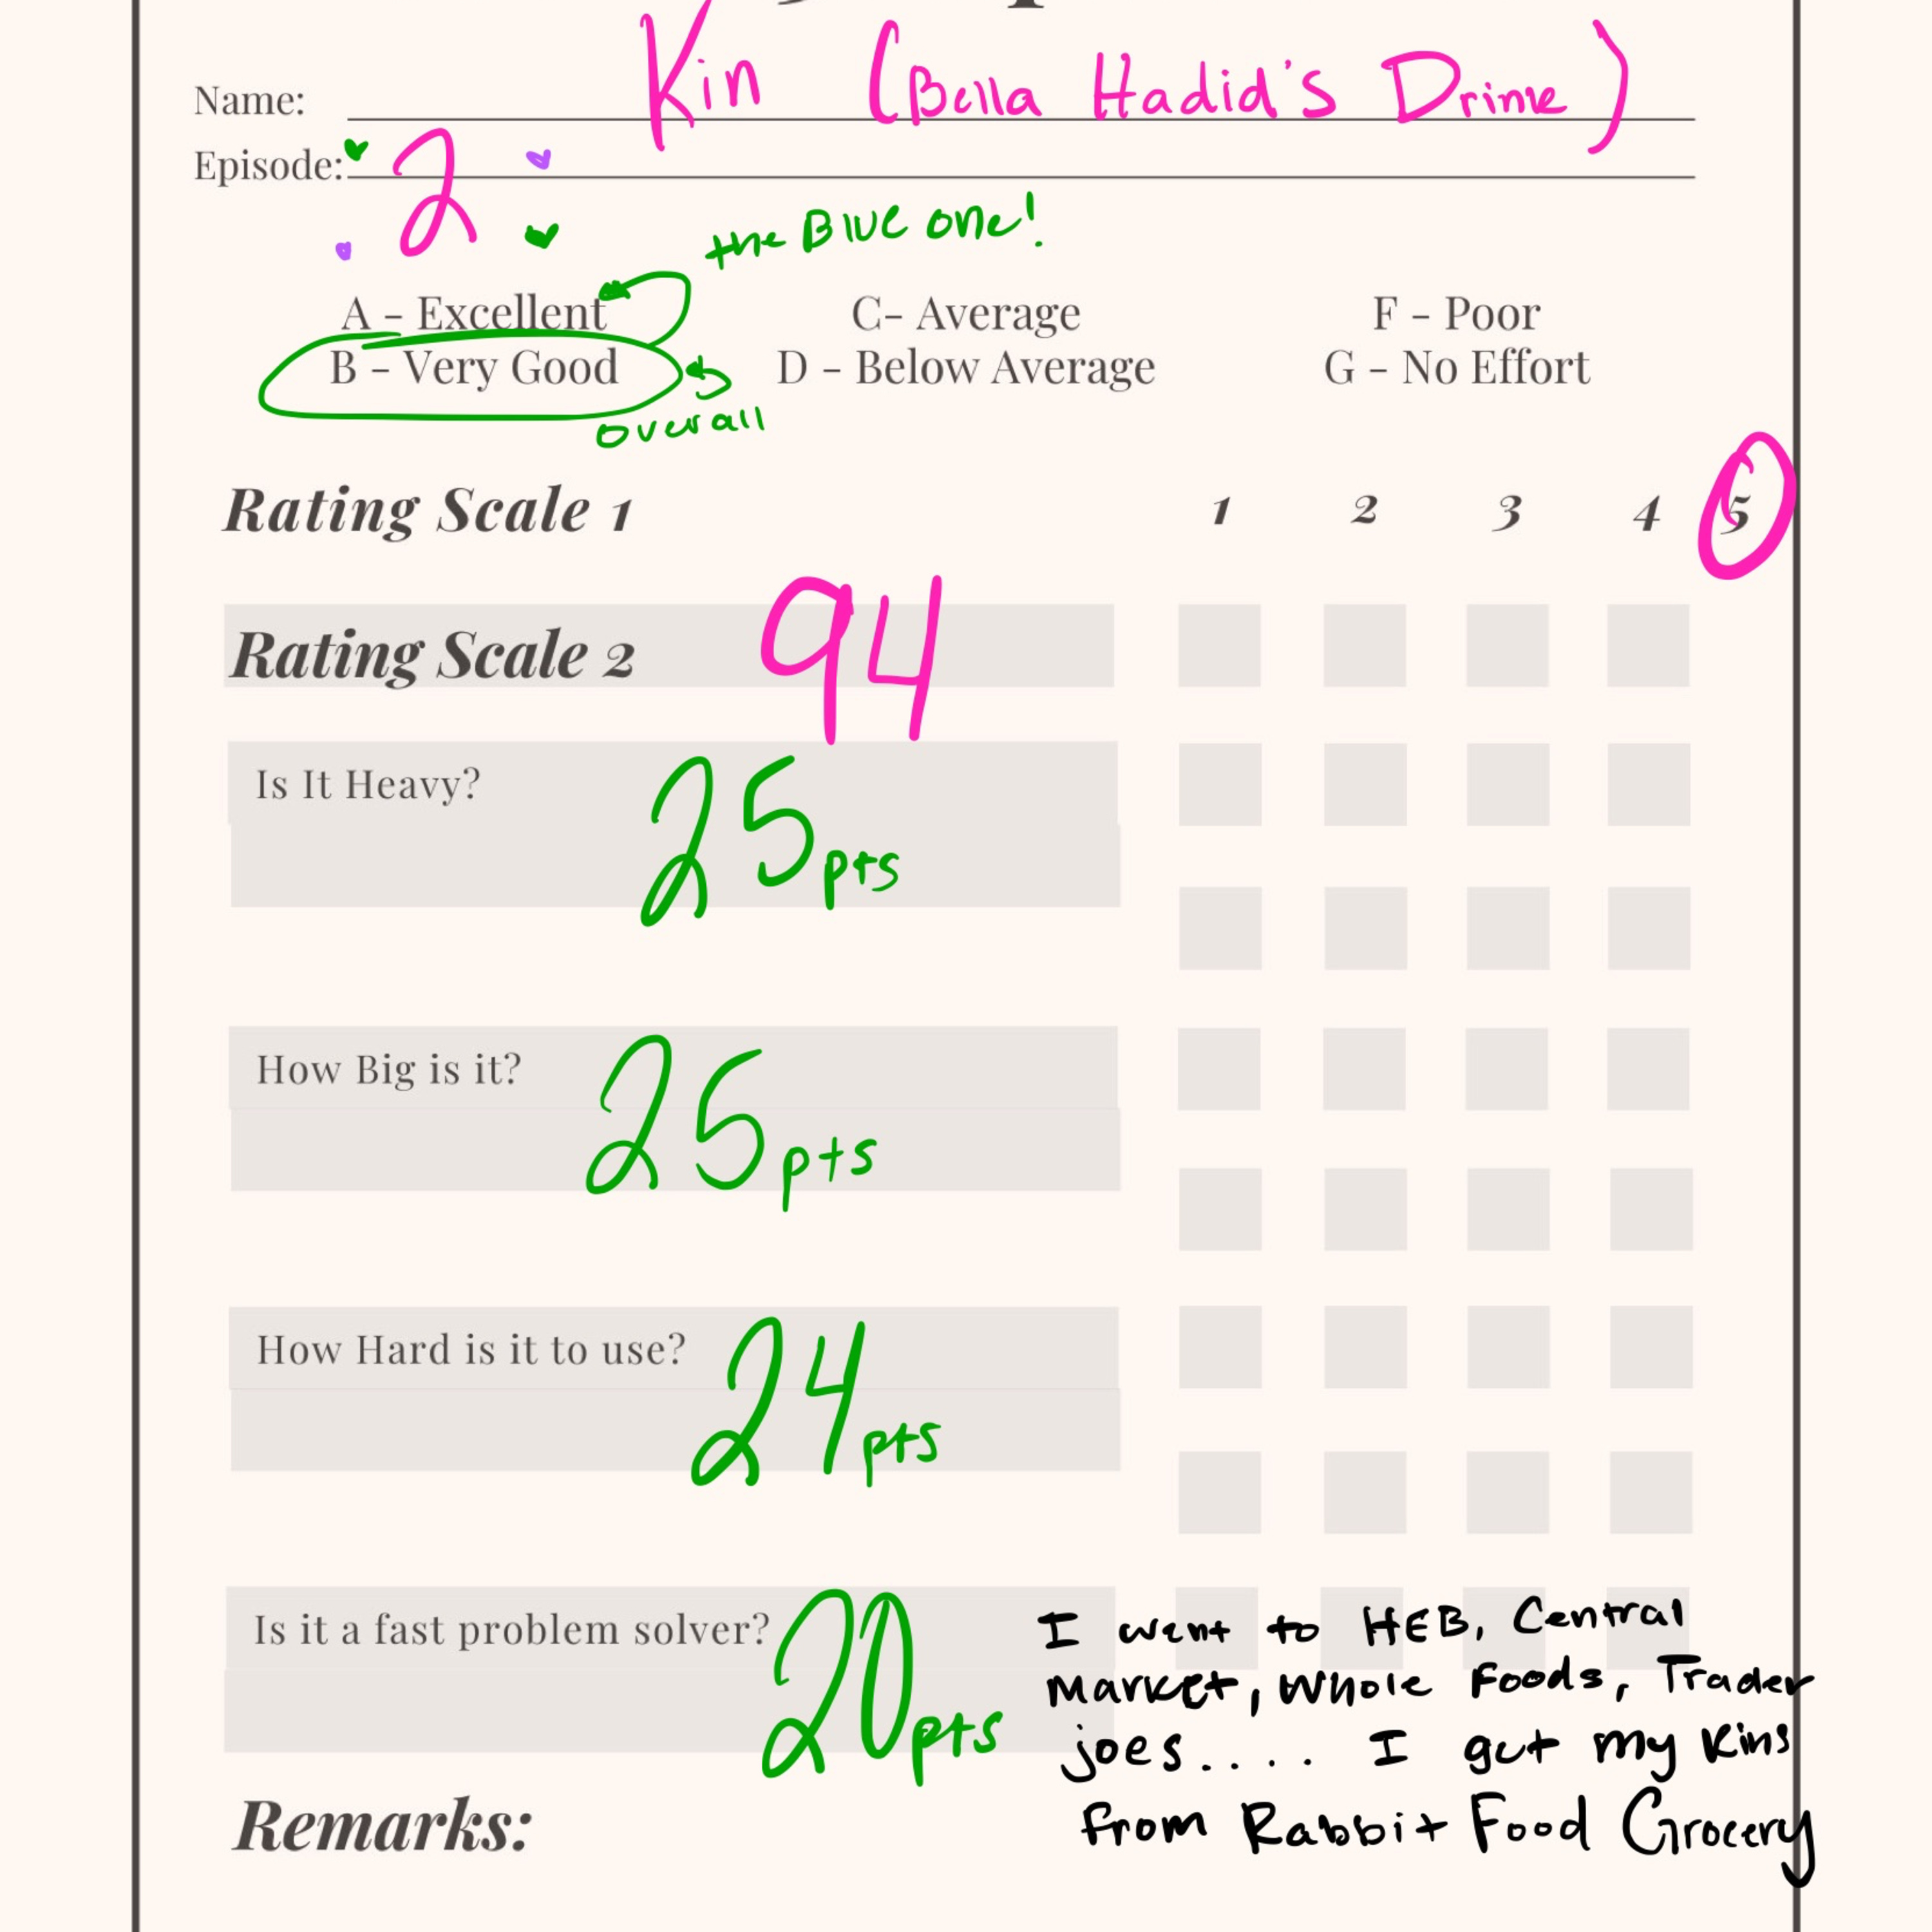 Name: Kin (Bella Hadid's Drink)
Episode: 2
the Blue one!
A - Excellent C- Average F - Poor
B - Very Good D - Below Average G - No Effort
overall
Rating Scale 1 1 2 3 4 5
Rating Scale 2 94
Is It Heavy?
25 pts
How Big is it?
25 pts
How Hard is it to use?
24 pts
Is it a fast problem solver?
20 pts
I went to HEB, Central
Market, Whole Foods, Trader
joes.... I got my Kins
from Rabbit Food Grocery
Remarks: